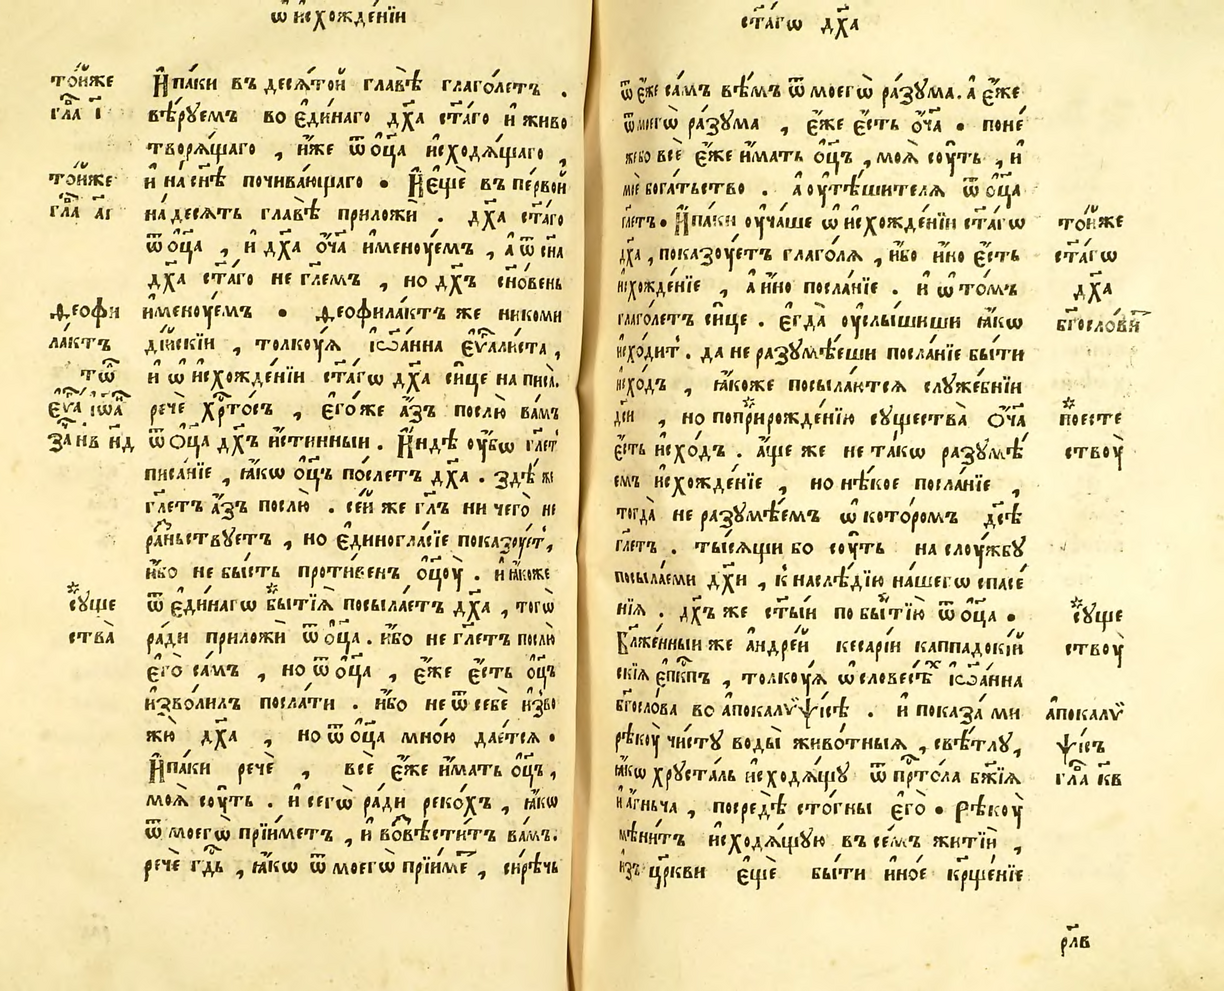 ѡ҆ и҆схожде́нїи
то́йже
гла̑ і҃
то́йже
гла̑ а҃і
Ѳеофи
ла́ктъ
то̑
є҆ѵ҃а і҆ѡ҃а
за̑ н҃в н҃д
*су́ще
ства̀
И҆па́ки въ деся́той главѣ̀ глаго́летъ .
вѣ́руемъ во є҆ди́наго дх҃а ст҃а́го и҆ живо
творѧ́щаго , и҆́же ѿ ѻ҆ц҃а и҆сходѧ́щаго ,
и҆ на сн҃ѣ почива́ющаго . И҆ є҆щѐ въ пе́рвой
на́десять главѣ̀ приложѝ . дх҃а ст҃а́го
ѿ ѻ҆ц҃а , и҆ дх҃а ѻ҆́ч҃а и҆менꙋ́емъ , а҆ ѿ сн҃а
дх҃а ст҃а́го не гл҃емъ , но дх҃ъ сн҃о́венъ
и҆менꙋ́емъ . Ѳеофила́ктъ же никоми
ди́йскїи , толкꙋ́ѧ і҆ѡа́нна є҆ѵ҃али́ста ,
и҆ ѡ҆ и҆схожде́нїи ст҃а́гѡ дх҃а си́це на писа̀.
речѐ хр҃то́съ , є҆го́же а҆́зъ послю̀ ва́мъ
ѿ ѻ҆ц҃а дх҃ъ и҆́стинныи . И҆ндѣ̀ ᲂу҆́бѡ гл҃етъ
писа́нїе , ꙗ҆́кѡ ѻ҆ц҃ъ по́слетъ дх҃а . здѣ́ же
гл҃етъ а҆́зъ послю̀ . се́й же гл҃ъ ничего̀ не
ра́ньствуетъ , но є҆диногла́сїе показꙋ́етъ,
и҆́бо не бы́сть проти́венъ ѻ҆ц҃ꙋ̀ . и҆ ꙗ҆́коже
ѿ є҆ди́нагѡ *бытїѧ̀ посыла́етъ дх҃а , тогѡ̀
ра́ди приложѝ ѿ ѻ҆ц҃а . и҆́бо не гл҃етъ послю̀
є҆го̀ са́мъ , но ѿ ѻ҆ц҃а , є҆́же є҆́сть ѻ҆ц҃ъ
и҆зво́лилъ посла́ти . и҆́бо не ѿ себѐ и҆зво
жю̀ дх҃а , но ѿ ѻ҆ц҃а мно́ю дае́тсѧ .
И҆па́ки речѐ , всѐ є҆́же и҆́мать ѻ҆ц҃ъ ,
моѧ̀ сꙋ́ть . и҆ сегѡ̀ ра́ди реко́хъ , ꙗ҆́кѡ
ѿ моегѡ̀ прїи́метъ , и҆ возвѣсти́тъ ва́мъ.
речѐ гд҃ь , ꙗ҆́кѡ ѿ моегѡ̀ прїи́ме , си́рѣчь
ст҃а́гѡ дх҃а
ѿ є҆́же са́мъ вѣ́мъ ѿ моегѡ̀ ра́зума. а҆ є҆́же
ѿ моегѡ̀ ра́зума , є҆́же є҆́сть ѻ҆́ч҃а . поне́
же бо всѐ є҆́же и҆́мать ѻ҆ц҃ъ , моѧ̀ сꙋ́ть , и҆
моѐ бога́тьство . а҆ ᲂу҆тѣ́шителѧ ѿ ѻ҆ц҃а
гл҃етъ. И҆па́ки ᲂу҆ча́ше ѡ҆ и҆схожде́нїи ст҃а́гѡ
дх҃а , показꙋ́етъ глаго́лѧ , и҆́бо и҆́но є҆́сть
и҆схожде́нїе , а҆ и҆́но посла́нїе . и҆ ѡ҆ то́мъ
глаго́летъ си́це . є҆гда̀ ᲂу҆слы́шиши ꙗ҆́кѡ
и҆схо́дитъ . да не разꙋмѣ́еши посла́нїе бы́ти
и҆схо́дъ , ꙗ҆́коже посыла́ютсѧ служе́бнїи
дс҃и , но по*прирожде́нїю существа̀ ѻ҆́ч҃а
є҆́сть и҆схо́дъ . а҆́ще же не та́кѡ разумѣ́
емъ и҆схожде́нїе , но нѣ́кое посла́нїе ,
тогда̀ не разумѣ́емъ ѡ҆ кото́ромъ дс҃ѣ
гл҃етъ . ты́сѧщи бо сꙋ́ть на слꙋ́жбу
посыла́еми дс҃и , к наслѣ́дїю на́шегѡ спасе́
нїѧ . дх҃ъ же ст҃ы́и по бытїю̀ ѿ ѻ҆ц҃а .
Бл҃же́нныи же а҆ндре́й кесарі́и каппадокі́й
скїѧ є҆пк҃пъ , толкꙋ́ѧ ѡ҆ словесѣ́хъ і҆ѡа́нна
бг҃осло́ва во а҆пока́лѵѱисѣ . и҆ показа́ ми
рѣкꙋ̀ чи́сту воды̀ живо́тныѧ , свѣ́тлу,
ꙗ҆́кѡ хруста́ль и҆сходѧ́щу ѿ пр҃то́ла бж҃їѧ
и҆ а҆́гньча , посредѣ̀ сто́гны є҆гѡ̀ . Рѣкꙋ̀
мѣни́тъ и҆сходѧ́щую въ се́мъ житїѝ ,
и҆зъ цр҃кви є҆щѐ бы́ти и҆но́е кр҃ще́нїе
то́йже
ст҃а́гѡ
дх҃а
бг҃осло́вїй
*по есте
ствꙋ̀
*су́ще
ствꙋ̀
а҆пока́лѵ
ѱісъ
гла̑ к҃в
рл҃в